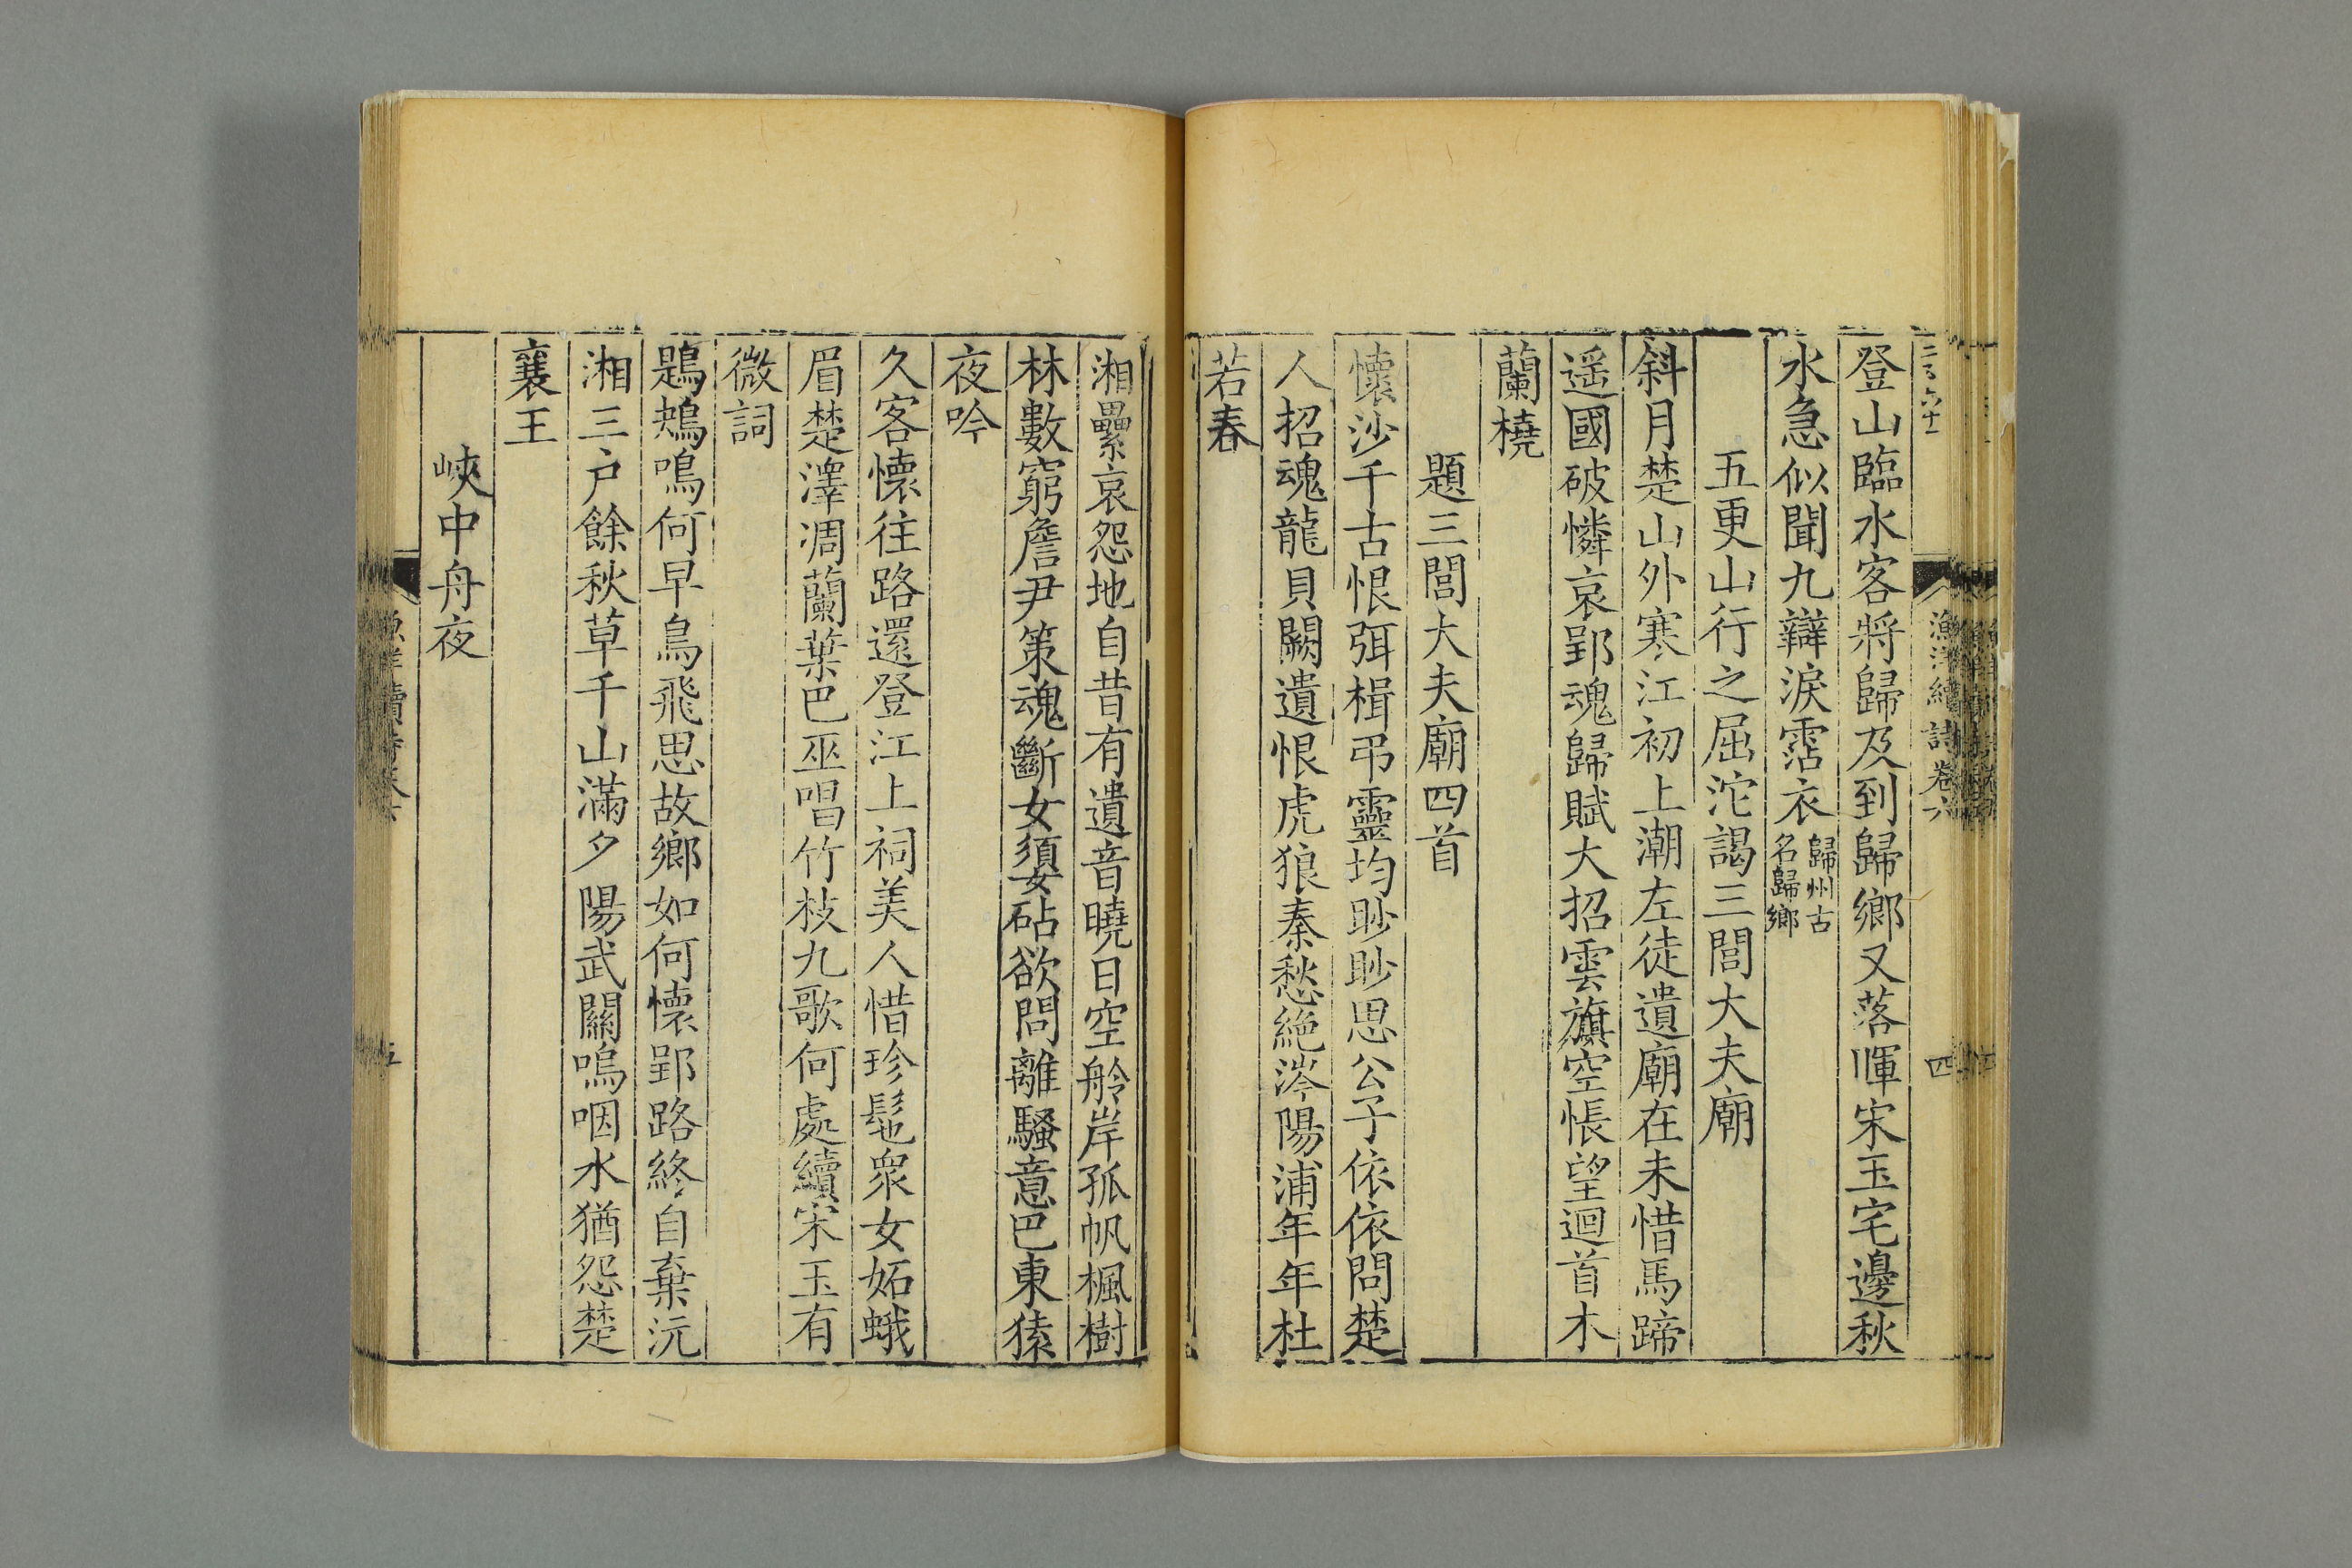 二百六十一
漁洋續詩卷六
四
登山臨水客將歸及到歸鄉又落暉宋玉宅邊秋
水急似聞九辯淚霑衣歸州古名歸鄉
五更山行之屈沱謁三閭大夫廟
斜月楚山外寒江初上潮左徒遺廟在未惜馬蹄
遥國破憐哀郢魂歸賦大招雲旗空悵望迴首木
蘭橈
題三閭大夫廟四首
懷沙千古恨弭楫弔靈均眇眇思公子依依問楚
人招魂龍貝闕遺恨虎狼秦愁絶涔陽浦年年杜
若春
湘纍哀怨地自昔有遺音曉日空舲岸孤帆楓樹
林數窮詹尹策魂斷女嬃砧欲問離騷意巴東猿
夜吟
久客懷往路還登江上祠美人惜珍髢衆女妬蛾
眉楚澤凋蘭葉巴巫唱竹枝九歌何處續宋玉有
微詞
鶗鴂鳴何早鳥飛思故鄉如何懷郢路終自棄沅
湘三户餘秋草千山滿夕陽武關嗚咽水猶怨楚
襄王
峽中舟夜
五